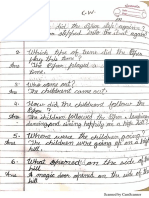 C.W.
did the Piper life again?
stepped into the street again
2- Which type of tune did the Piper
play this time?
Ans The Piper played a
tune.
3- Who came out?
Ans The children came out.
4- How did the children follow the
Piper?
Ans The children followed the Piper
dancing and happily on a hill.
5- Where were the children going?
Ans The children were going up on a
hill.
6- What opened on the side of the
hill?
Ans A magic door opened on the side of
hill.
Scanned by CamScanner